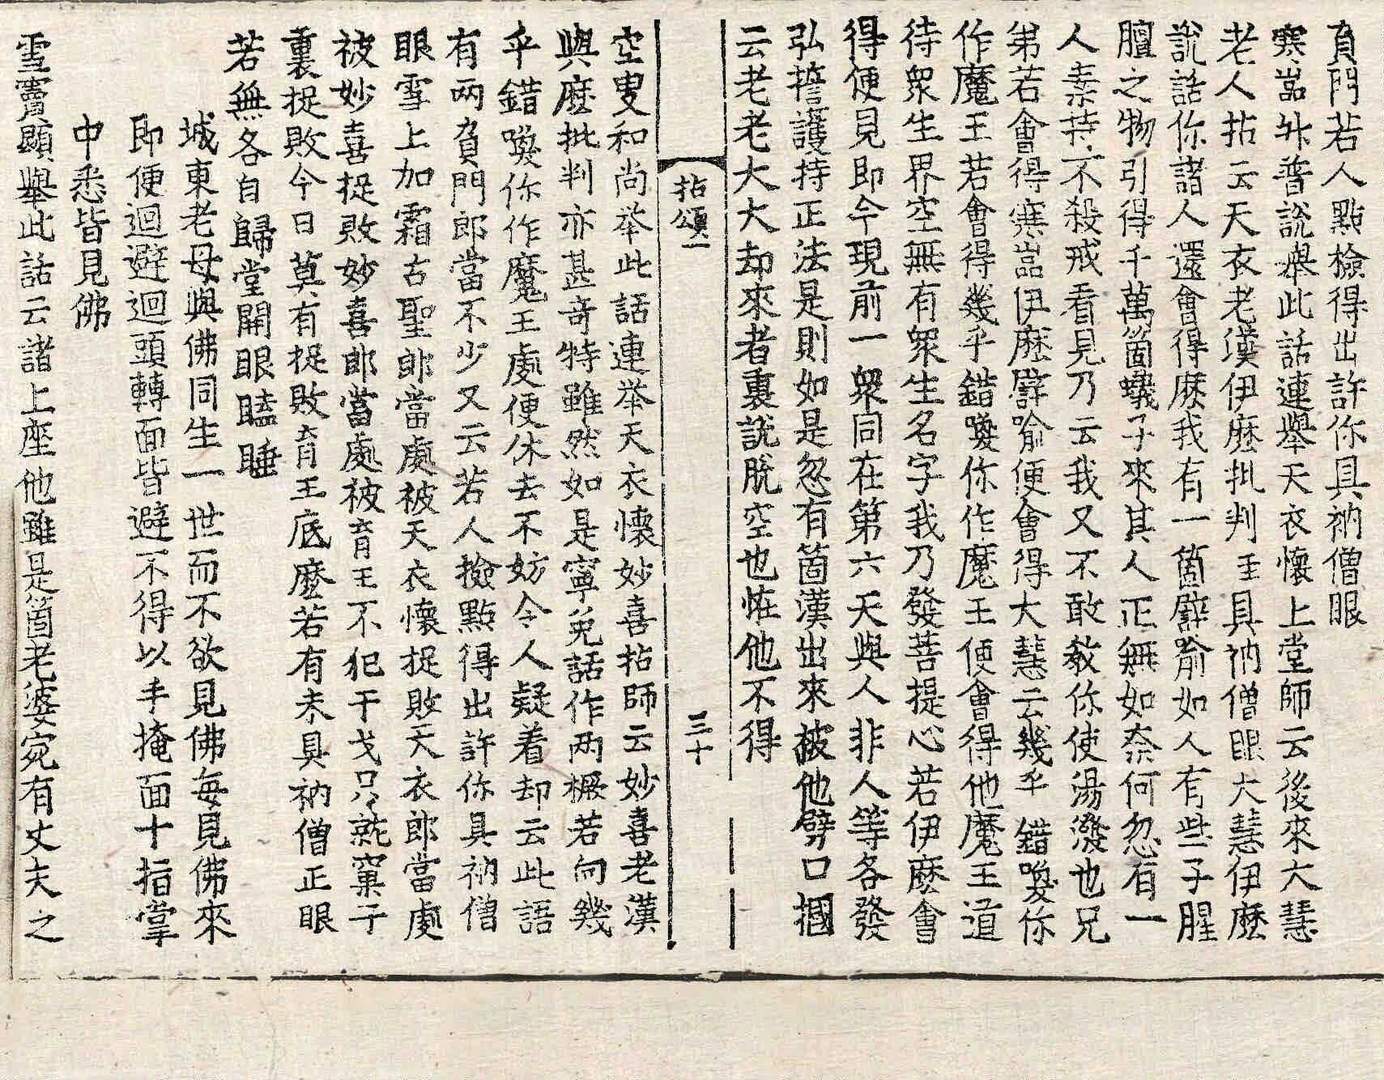 負門若人點檢得出許你具衲僧眼
寒嵓升普說舉此話連舉天衣懷上堂師云後來大慧
老人拈云天衣老漢伊麽批判主具衲僧眼大慧伊麽
說話你諸人還會得麽我有一箇譬喻如人有些子腥
膻之物引得千萬箇蟻子來其人正無如奈何忽有一
人素持不殺戒看見乃云我又不敢教你使湯潑也兄
弟若會得寒嵓伊麽譬喻便會得大慧云幾乎錯喚你
作魔王若會得幾乎錯喚你作魔王便會得他魔王道
待衆生界空無有衆生名字我乃發菩提心若伊麽會
得便見即今現前一衆同在第六天與人非人等各發
弘誓護持正法是則如是忽有箇漢出來被他劈口摑
云老老大大却來者裏說脫空也恠他不得
拈頌一
三十
空叟和尚举此話連举天衣懷妙喜拈師云妙喜老漢
與麽批判亦甚奇特雖然如是寧免話作兩橛若向幾
乎錯喚你作魔王處便休去不妨令人疑着却云此語
有兩負門郎當不少又云若人撿點得出許你具衲僧
眼雪上加霜古聖郎當處被天衣懷捉敗天衣郎當處
被妙喜捉敗妙喜郎當處被育王不犯干戈只就窠子
裏捉敗今日莫有捉敗育王底麽若有未具衲僧正眼
若無各自歸堂開眼瞌睡
城東老母與佛同生一世而不欲見佛每見佛來
即便迴避迴頭轉面皆避不得以手掩面十指掌
中悉皆見佛
雪竇顯舉此話云諸上座他雖是箇老婆宛有丈夫之